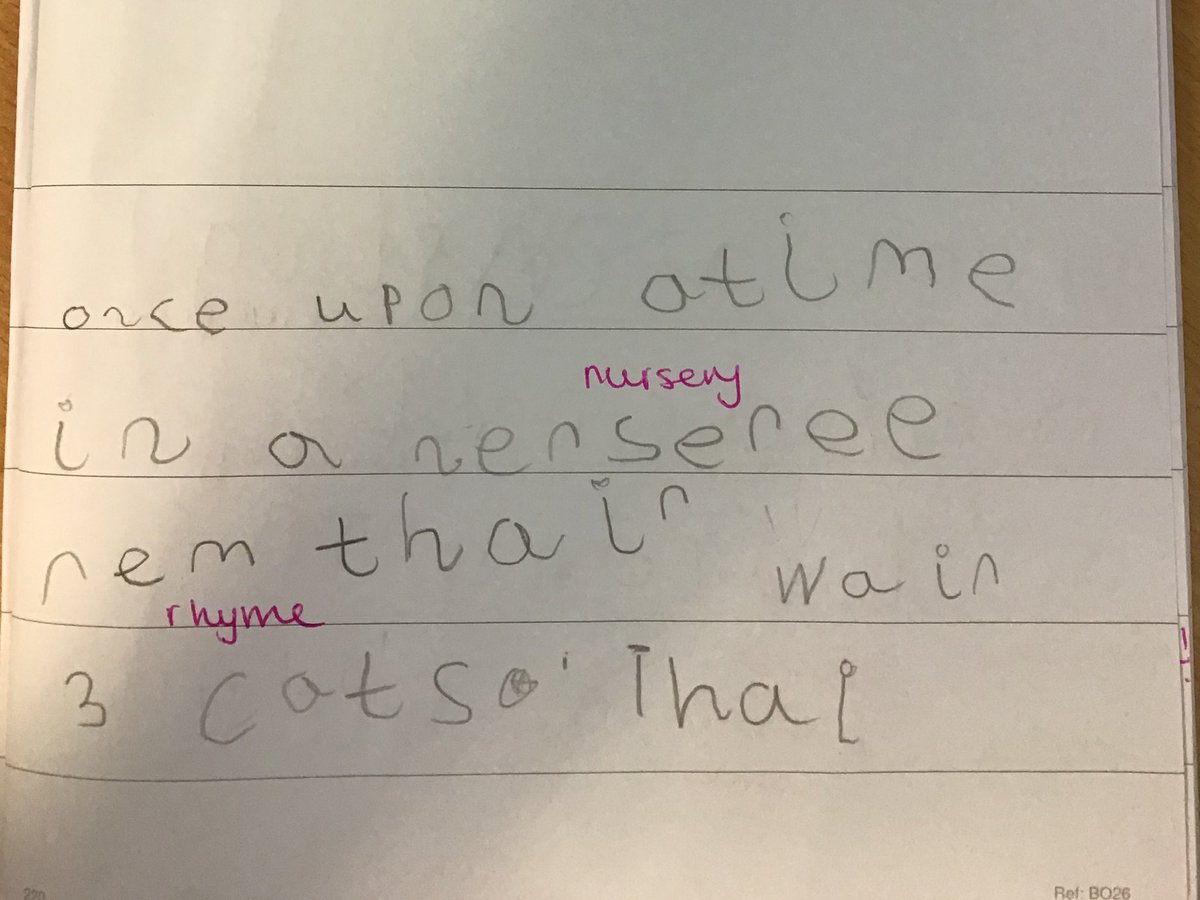 once upon atime
nursery
in a nenseree
rem thair wair
rhyme
3 cats. Thai
220
Ref: BO26